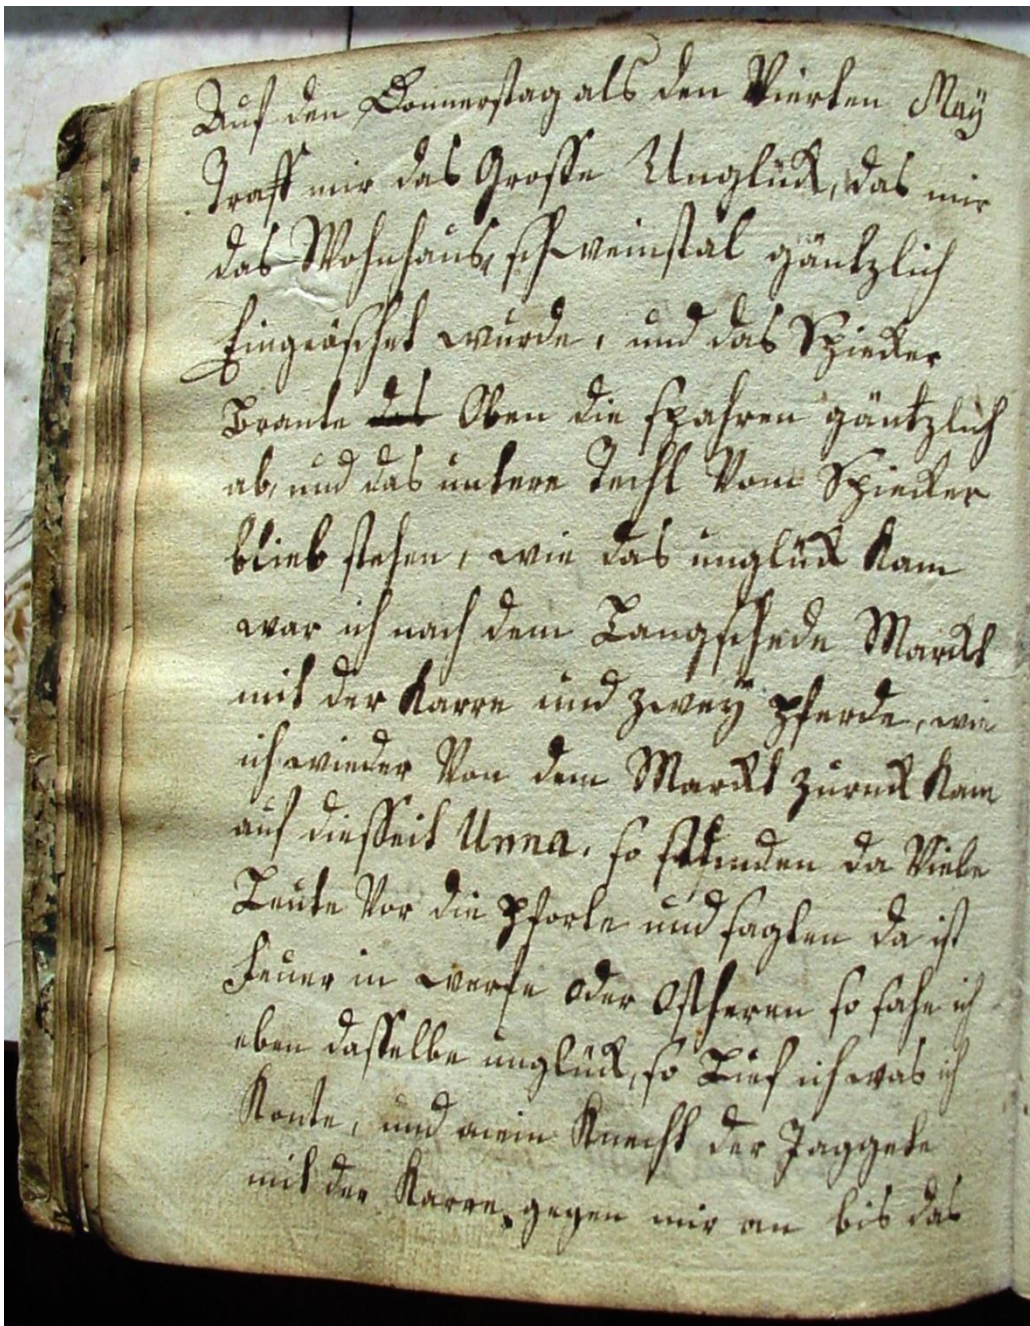 Auf den Donnerstag als den Vierten May
Traff mir das Grosse Unglück, das mir
das Wohnhaus, schweinstal gäntzlich
Eingeäschet wurde, und das Spieker
Brante das Oben die spahren gäntzlich
ab, und das untere Teihl Vom Spieker
blieb stehen, wie das unglück Kam
war ich nach dem Langschede Marckt
mit der Karre und zwey Pferde, wie
ich wieder Von dem Marckt zurück Kam
auf diesseit Unna, so stunden da Viele
Leute Vor die Pforte und sagten da ist
Feuer in werfe oder Ostheren so sahe ich
eben dasselbe unglück, so Lief ich was ich
Konte, und mein Knecht der Jaggete
mit der Karre gegen mir an bis das